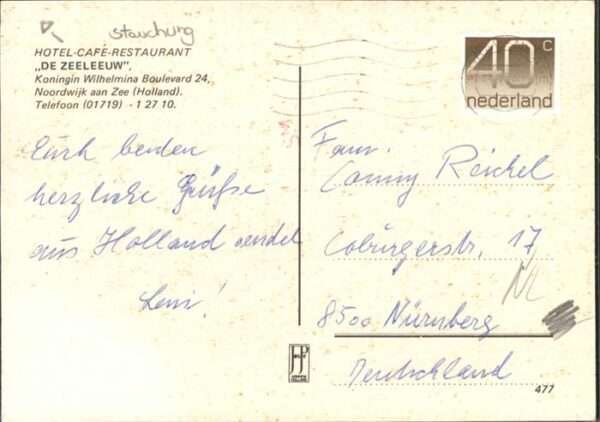 stauchung
HOTEL-CAFÉ-RESTAURANT
„DE ZEELEEUW",
Koningin Wilhelmina Boulevard 24,
Noordwijk aan Zee (Holland).
Telefoon (01719) - 1 27 10.
40 c
nederland
Euch beiden
herzliche Grüße
aus Holland sendet
Fam.
Conny Reichel
Coburgerstr. 17
8500 Nürnberg
Deutschland
477